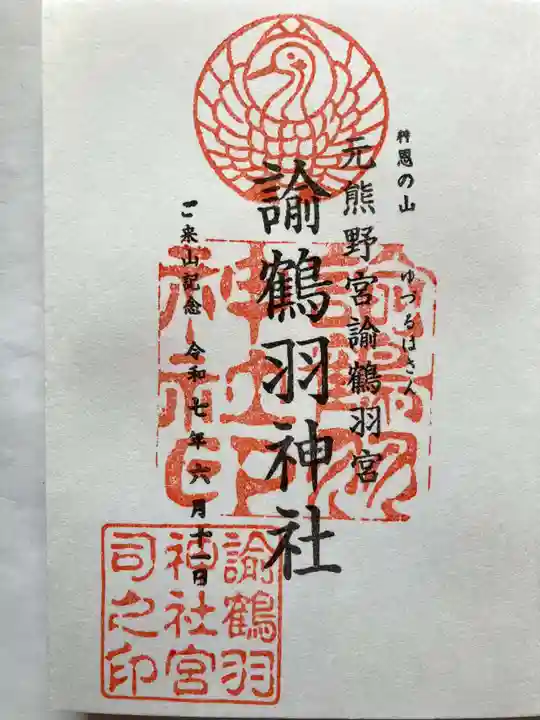 梓恩の山
元熊野宮諭鶴羽宮
ゆづるはさん
諭鶴羽神社
ご来山記念 令和七年六月十一日
諭鶴羽
神社宮
司之印